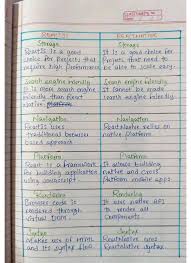 REACTJS
REACTNATIVE
Storage
ReactJS is a good
choice for Projects that
requires high Performance
Storage
It is a good choice for
Project that need to
be able to scale easy.
Search engine friendly
It is more search engine
friendly than React
Native platform
Search engine friendly
It cannot be made
search engine friendly
Navigation
ReactJS uses
traditional browser
based approach
Navigation
ReactNative relies on
native Platform
Platform
React is a framework
for building application
using javascript.
Platform
It allows building
native and cross
platform mobile apps
Rendering
Browser code is
rendered through
virtual Dom.
Rendering
It uses native API
to render all
components.
Syntax
Makes use of HTML
and its syntax flow.
Syntax
ReactNative uses
ReactNative syntax.